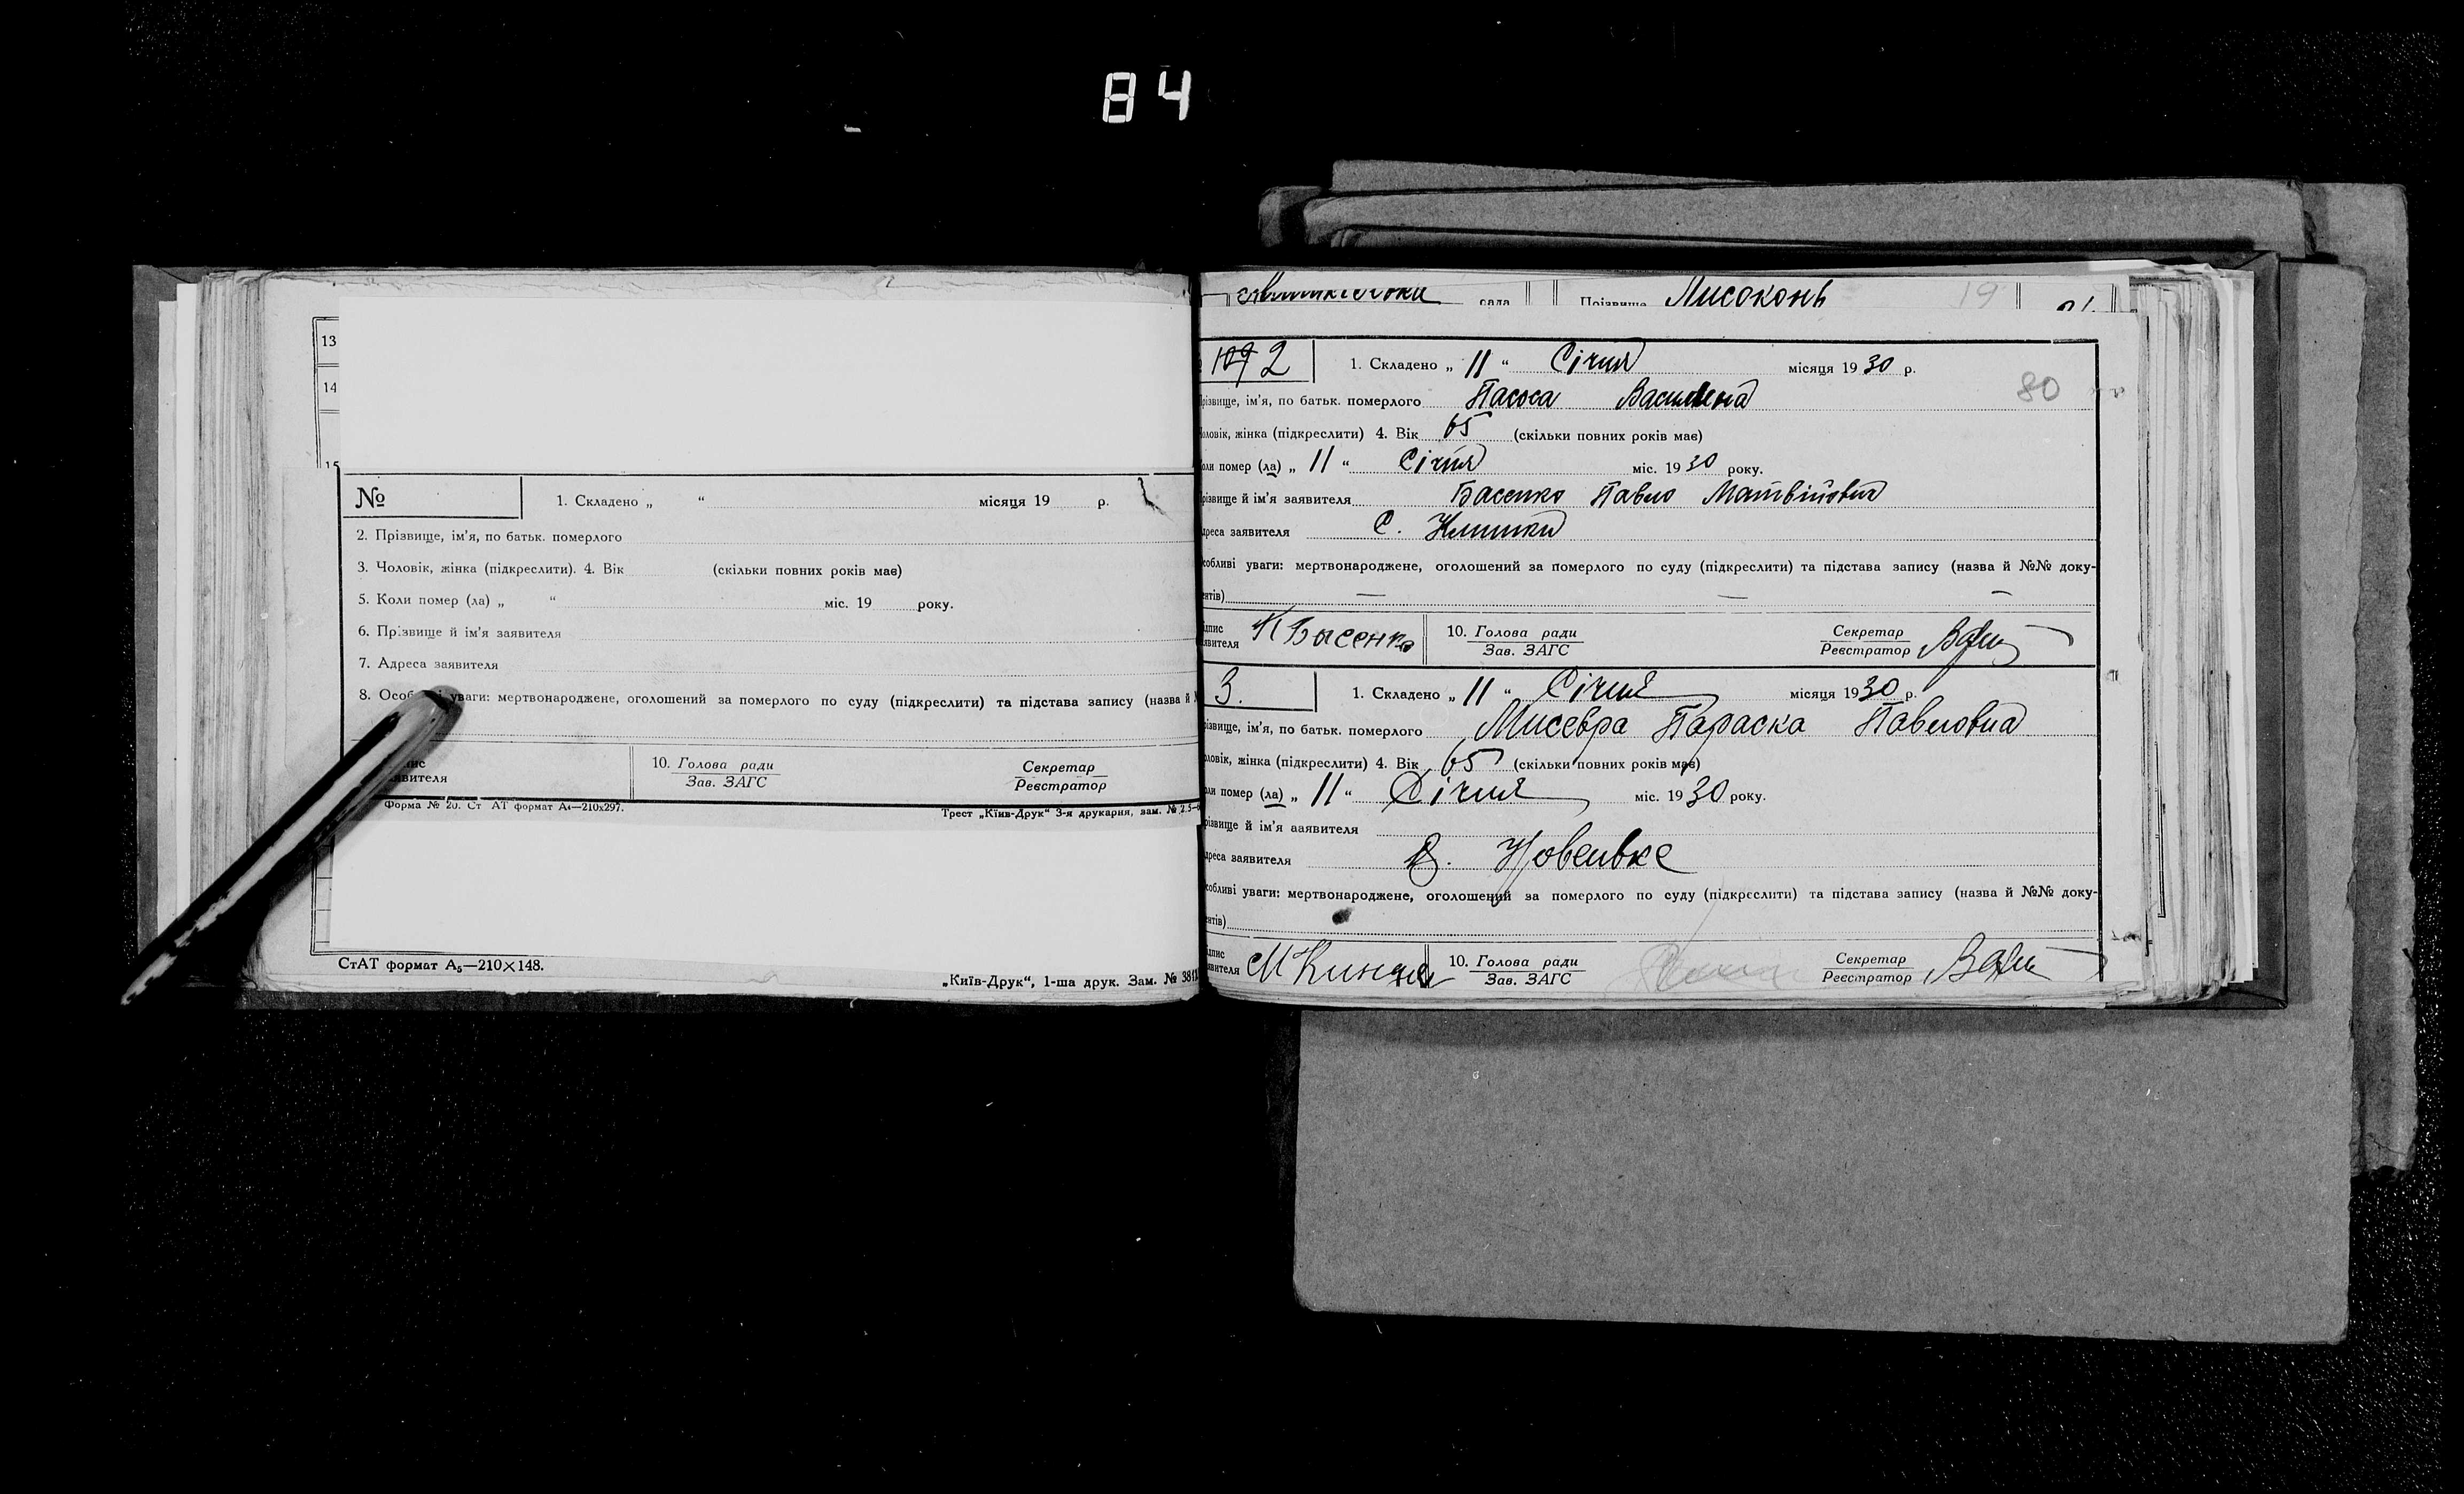 84
13
14
15
№ 1. Складено „ “ місяця 19 р.
2. Прізвище, ім'я, по батьк. померлого
3. Чоловік, жінка (підкреслити). 4. Вік (скільки повних років має)
5. Коли помер (ла) „ “ міс. 19 року.
6. Прізвище й ім'я заявителя
7. Адреса заявителя
8. Особ уваги: мертвонароджене, оголошений за померлого по суду (підкреслити) та підстава запису (назва й
явителя
10. Голова ради
Зав. ЗАГС
Секретар
Реєстратор
Форма № 20. Ст АТ формат А4—210х297.
Трест „Київ-Друк“ 3-я друкарня, зам. №
СтАТ формат А5—210×148.
„Київ-Друк“, 1-ша друк. Зам. № 381
рада Прізвище Лисоконь 19
2 1. Складено „ 11 “ Січня місяця 1930 р.
різвище, ім'я, по батьк. померлого Василена
80
оловік, жінка (підкреслити) 4. Вік 65 (скільки повних років має)
оли помер (ла) „ 11 “ Січня міс. 1930 року.
різвище й ім'я заявителя Басенко Павло Матвійович
дреса заявителя С. Клишки
собливі уваги: мертвонароджене, оголошений за померлого по суду (підкреслити) та підстава запису (назва й №№ доку-
ентів) — — —
ідпис
аявителя
10. Голова ради
Зав. ЗАГС
Секретар
Реєстратор
3. 1. Складено „ 11 “ Січня місяця 1930 р.
різвище, ім'я, по батьк. померлого Мисевра Параска Павловна
оловік, жінка (підкреслити) 4. Вік 65 (скільки повних років має)
оли помер (ла) „ 11 “ Січня міс. 1930 року.
різвище й ім'я ааявителя
дреса заявителя
собливі уваги: мертвонароджене, оголошений за померлого по суду (підкреслити) та підстава запису (назва й №№ доку-
ентів)
ідпис
аявителя
10. Голова ради
Зав. ЗАГС
Секретар
Реєстратор